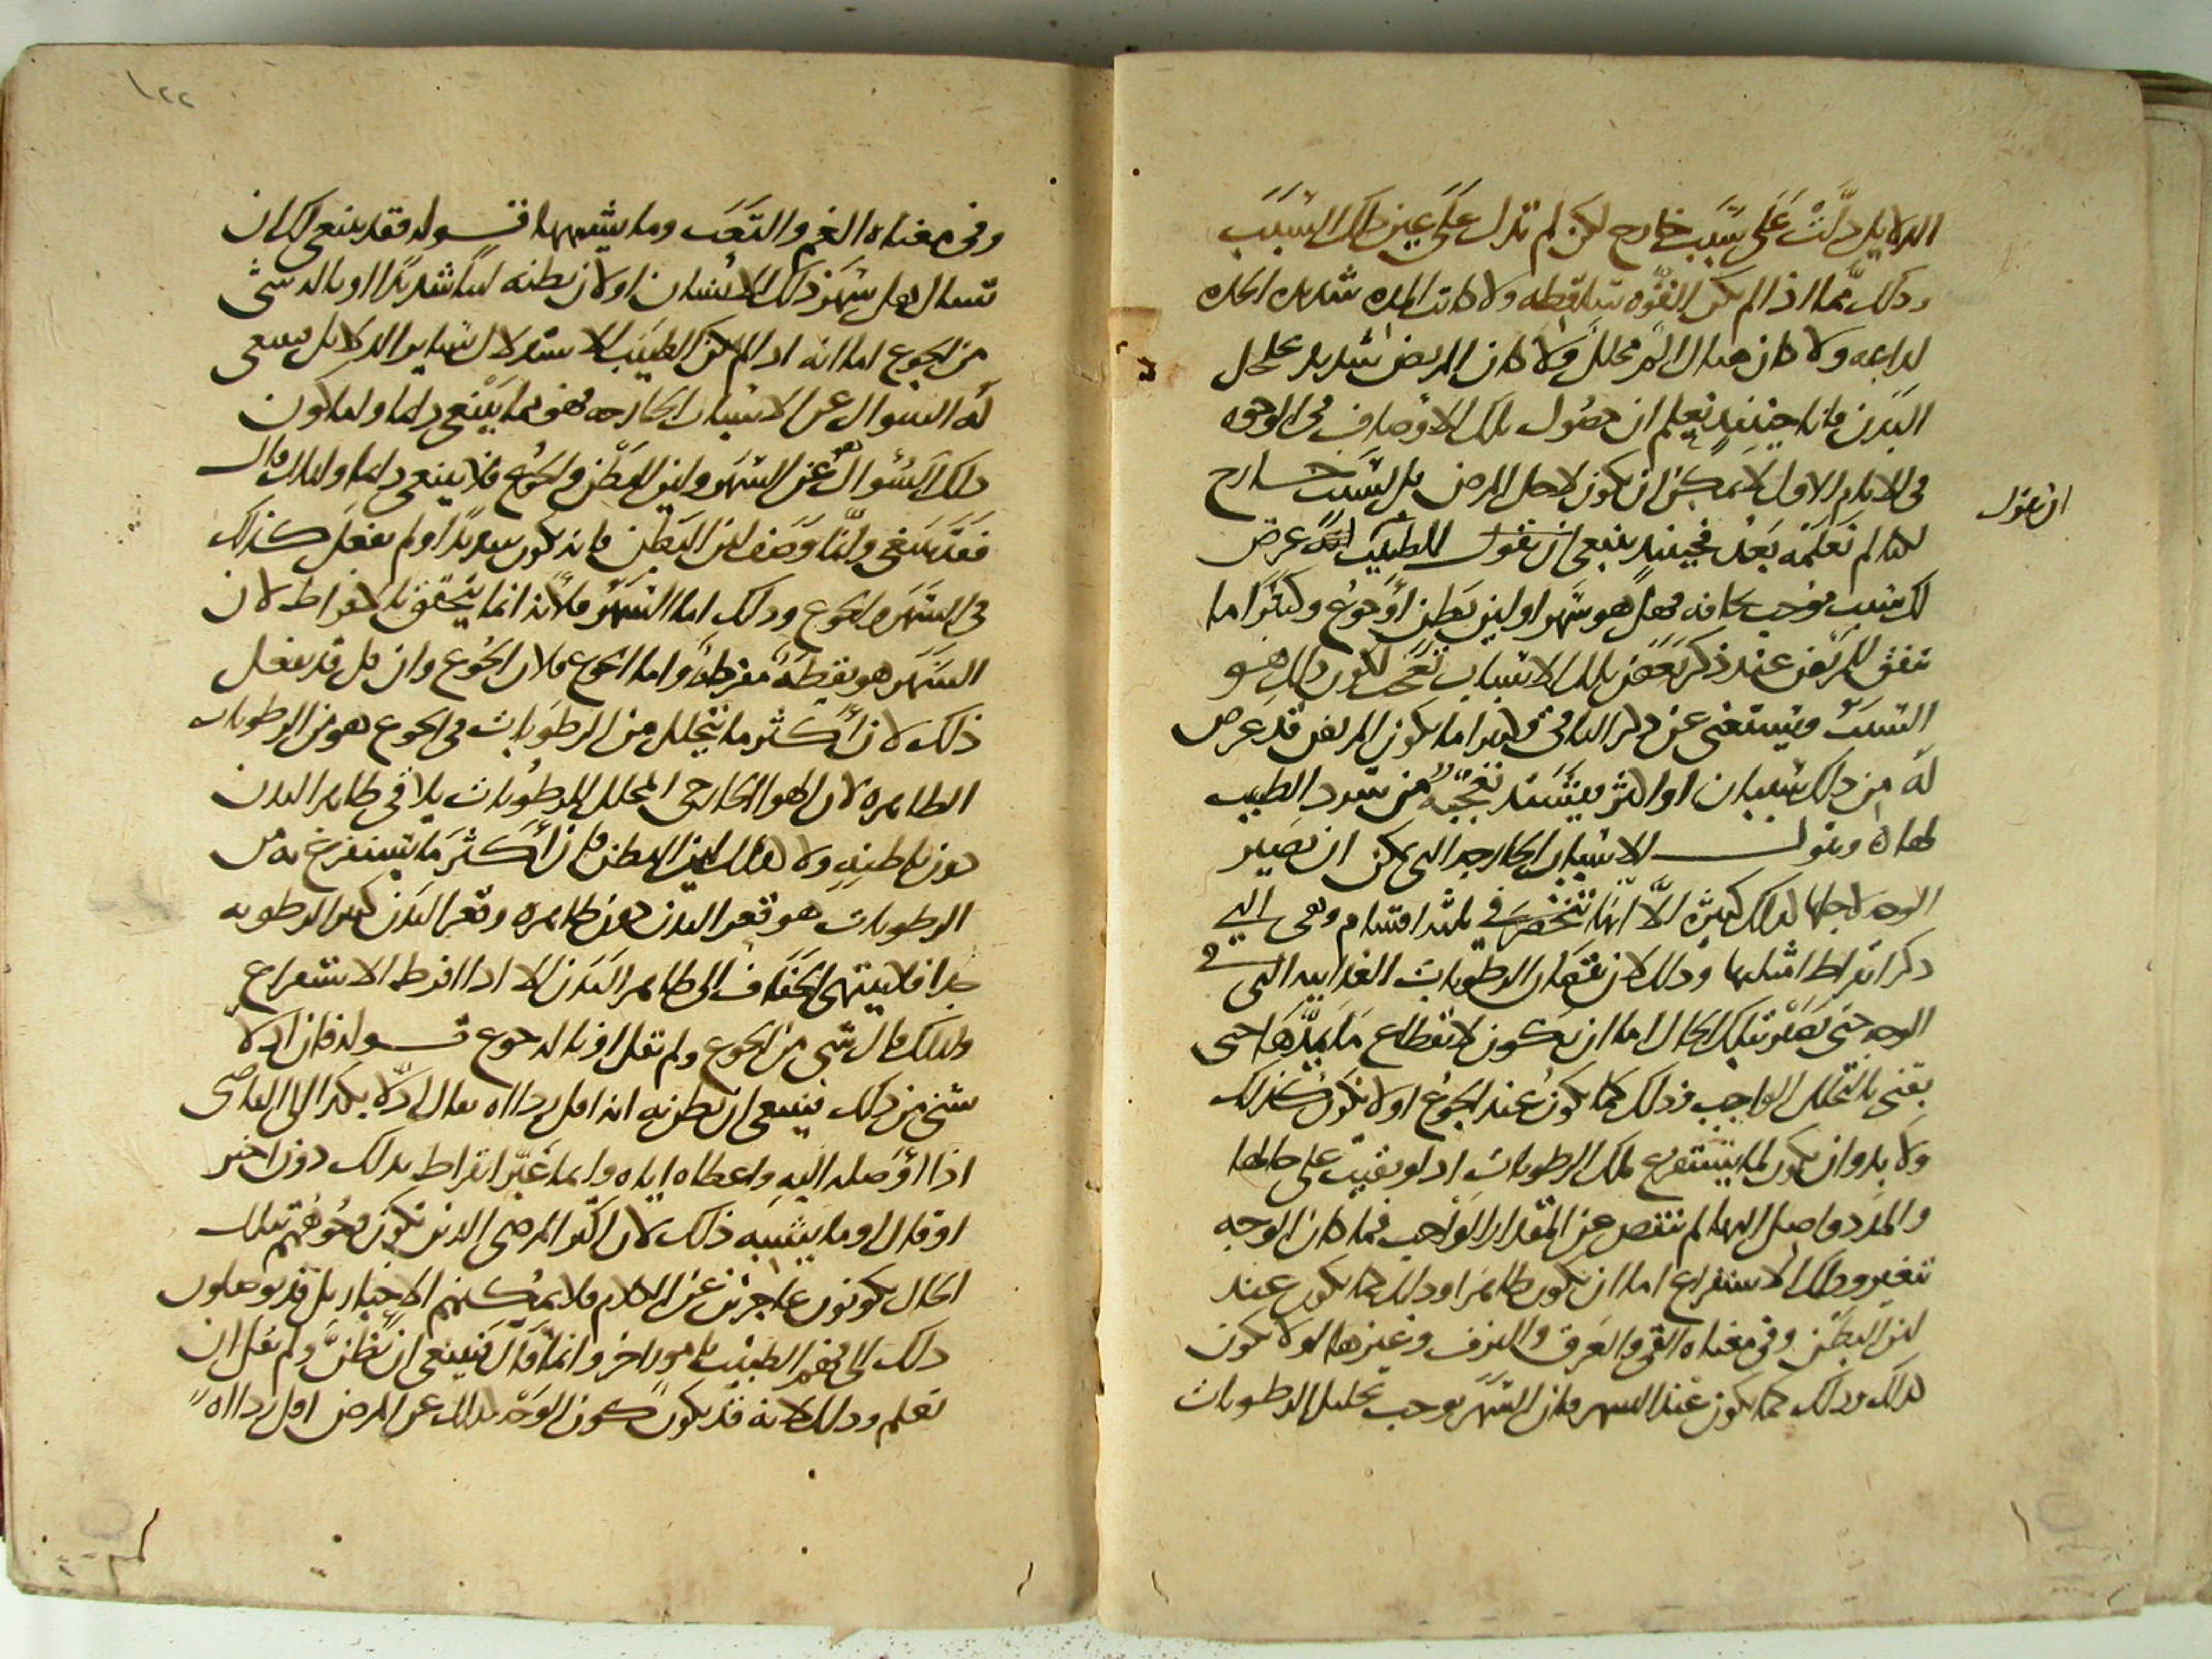 الدلايل دلَّتْ عَلَى سَبَب خارج لكن لم تدل على عين ذلك السَبَب
وذلك مما اذا لم تكن القوَّه ساقطه ولا كانت المده شديده الحده
لداعه ولا كان هناك الم محلل ولا كان المرض شديد تحليل
البَدن فانا حينئذ نعلم ان حصُول تلك الاوصاف في الوجه
في الايام الاول لا يمكن ان يكون لاجل المرض بل لسَبَب خارج
لكنا لم نعلمه بَعْد فحينئذ ينبغي ان نقول للطبيب عرض
لك سبب موجب نحافه فهل هو سَهر او لين بَطن او جوع وكثيرًا ما
يتفق للمريض عند ذكر بَعض تلك الاسباب تعجب لكون ذلك هو
السبَب ويستغنى عن ذكر الباقي وكثيرا ما يكون المريض قد عرض
لَهُ من ذلك سببان او اكثر فيشتد تعجبه من سرد الطبيب
لهاه ونقول الاسباب الخارجه التي يمكن ان تصير
الوجه لاجلها كذلك كثيره الَّا انها تنحصر في ثلثه اقسام وهي التي
ذكر ابقراط امثلتها وذلك لان نقصان الرطوبات الغذاييه التي في
الوجه حتى تصير بتلك الحال اما ان يكون لانقطاع مَا يمدّها حتى
يفنى بالتحلل الواجب وذلك كما يكون عند الجوع او لا يكون كذلك
وَلا بد وان يكون لما يستفرغ تلك الرطوبات اذ لو بقيت على حالها
والمدد واصل اليها لم تنقص عن المقدار الواجب فما كان الوجه
تتغير وذلك الاستفراغ اما ان يكون ظاهرا وذلك كما يكون عند
لين البَطن وفي معناه القي والعَرق والنزف وغيرها او لا يكون
كذلك وذلك كما يكون عند السهر فان السَّهَر يوجب تحليل الرطوبات
ان نقول
١٢٢
وفي معناه الغم والتَعَب وما يشبهها قوله فقد ينبغي لك ان
تسال هل سَهَر ذلك الانسَان او لان بطنه لينًا شديدًا او ناله شي
من الجوع اما انه اذا لم يمكن الطبيب الاستدلال بساير الدلايل ينبغي
لَه السوال عن الاسباب الخارجه فهو مما ينبغي دايما واما كون
ذلك السُؤال هو عن السَهر ولين البَطن والجوع فلا ينبغي دايما ولذلك قال
فقد ينبغي وانّما وَصف لين البَطن فانه يكون شديدًا ولم يفعل كذلك
في السَّهَر والجوع وذلك اما السَهر فلانه انما يتحقق بالافراط لان
السَّهَر هو يقظه مفرطه واما الجوع فلان الجوع وان قل قد يفعل
ذلك لان أكثر ما يتحلل من الرطوبات في الجوع هو من الرطوبات
الظاهره لان الهوا الخارجي المحلل للرطوبات يلاقي ظاهر البدن
دون باطنه ولا كذلك لين البطن فان أكثر ما يستفرغ به من
الرطوبات هو قعر البدن دون ظاهره وقعر البَدن كثير الرطوبه
جدا فلا ينتهي الجفاف الى ظاهر البَدن الا اذا افرط الاستفراغ
ولذلك قال شي من الجوع ولم يقل او ناله جوع قوله فان ادلا
شي من ذلك فينبغي ان يظن به انه اقل رداه يقال ادلا بكذا الى القاضي
اذا اوصله اليه واعطاه اياه وانما عَبَّر ابقراط بذلك دون اخبر
او قال او ما يشبه ذلك لان اكثر المرضى الذين تكون وجوههم بتلك
الحال يكونون عاجزين عن الكلام فلا يمكنهم الاخبار بل قد يوصلون
ذلك الى فهم الطبيب بامور اخر وانما قال فينبغي ان يظنَّ ولم يقل ان
يعلم وذلك لانه قد يكون كون الوَجه كذلك عن المرض اقل رداه